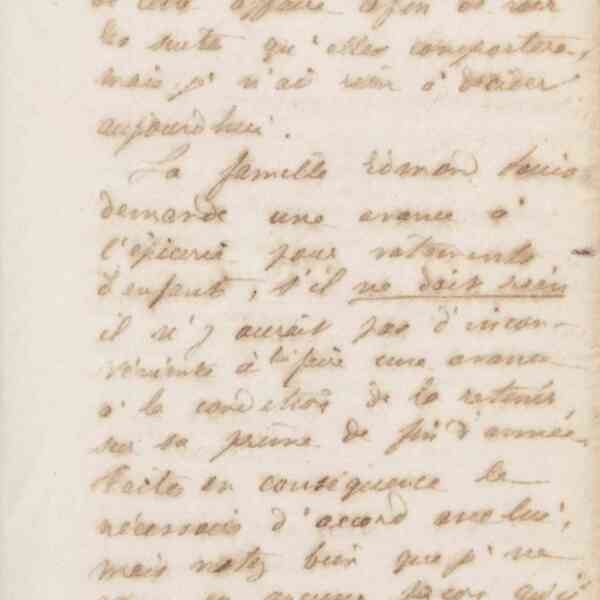 de cette affaire afin de voir
les suites qu'elles comportera,
mais je n'ai rien à décider
aujourd'hui.
La famille Edmond Louis
demande une avance à
l'épicerie pour vêtements
d'enfant, s'il ne doit rien
il n'y aurait pas d'incon-
vénients à lui faire une avance
à la condition de la retenir
sur sa prime de fin d'année.
Faites en conséquence le
nécessaire d'accord avec lui,
mais notez bien que je ne
en aucune façon qu'il